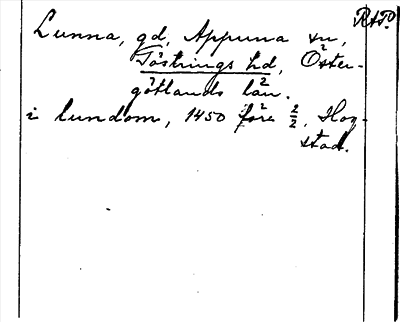 RAP.
Lunna, gd, Appuna sn,
Göstrings hd, Öster-
götlands län.
i lundom, 1450 före 2/2, Hog-
stad.